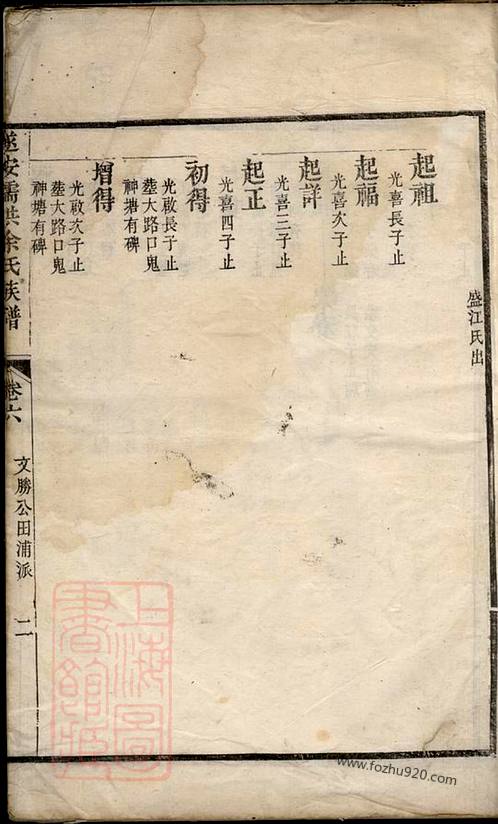 盛江氏出
起祖
光喜長子止
起福
光喜次子止
起詳
光喜三子止
起正
光喜四子止
初得
光啟長子止
塟大路口鬼
神塘有碑
增得
光啟次子止
塟大路口鬼
神塘有碑
遂安儒洪余氏族譜
卷六
文勝公田浦派
二
上海圖
書館藏
www.fozhu920.com